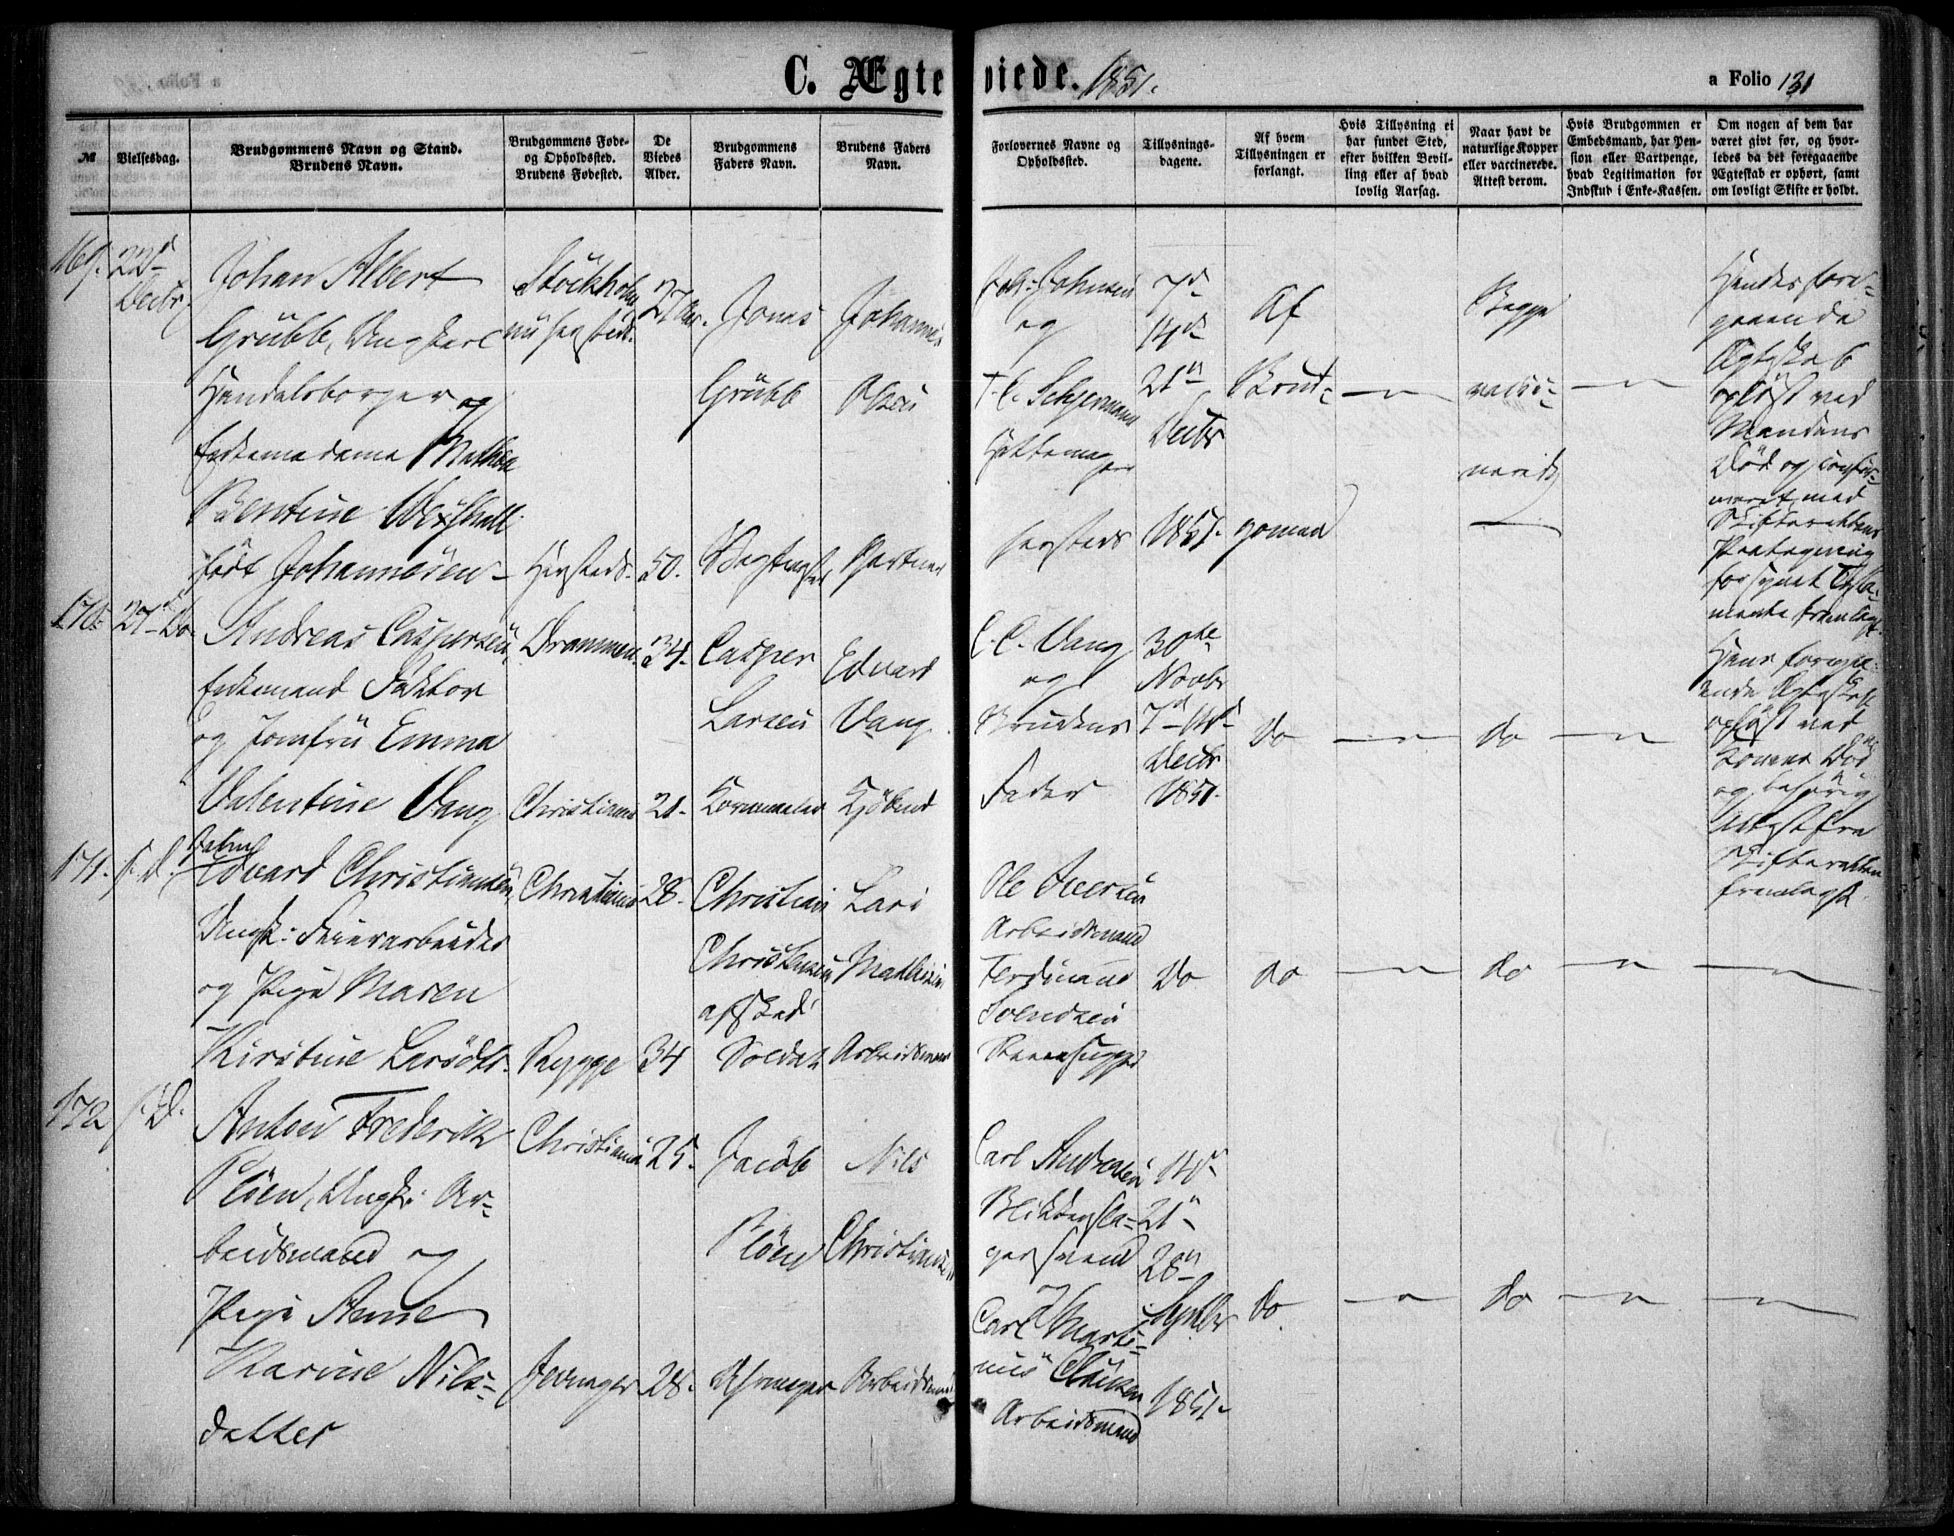 C. Ægteviede. 1851.
a Folio 131
№
Vielsesdag.
Brudgommens Navn og Stand.
Brudens Navn.
Brudgommens Føde-
og Opholdssted.
Brudens Fødested.
De
Viedes
Alder.
Brudgommens
Faders Navn.
Brudens Faders
Navn.
Forlovernes Navne og
Opholdssted.
Tillysnings-
dagene.
Af hvem
Tillysningen er
forlangt.
Hvis Tillysning ei
har fundet Sted,
efter hvilken Bevil-
ling eller af hvad
lovlig Aarsag.
Naar havt de
naturlige Kopper
eller vaccinerede.
Attest derom.
Hvis Brudgommen er
Embedsmand, har Pen-
sion eller Vartpenge,
hvad Legitimation for
Indskud i Enke-Kassen.
Om nogen af dem har
været givt før, og hvor-
ledes da det foregaaende
Ægteskab er ophørt, samt
om lovligt Skifte er holdt.
169.
22d
Decbr.
Johan Albert
Grübb, Ungkarl
Handelsborger og
Enkemadame Mathea
Bentine
født Johannesen
Stockholm
27
50.
Jonas
Grübb
Johannes
Olsen
Joh: Johnsen
og
T. C. Schjermann
7d
14d
21n
Decbr
1851.
Af
Brud-
gommen
Begge
vacci-
nerede
Hendes fore-
gaaende
Ægteskab
opløst ved
Mandens
Død og
med
Skifterettens
Paategning
forsynet Testa-
mente fremlagt.
170.
27d Do.
Andreas Caspersen,
Enkemand Faktor
og Jomfru Emma
Valentine Vang
Drammen.
Christiania
34.
21.
Casper
Larsen
Edvard
Vang.
C. C. Vang
og
Brudens
Fader
30te
Novbr
7d 14d
Decbr
1851.
Do
do
Hans foregaa-
ende Ægteskab
opløst ved
Konens Død
og behørig
Attest fra
Skifteretten
fremlagt.
171.
s. D.
Edvard Christiansen,
Ungk: Feierarbeider
og Pige Maren
Kirstine Larsdtr.
Christiania
Rygge
28.
34
Christian
Christensen
afskediget
Soldat
Lars
Mathisen
Arbeidsmand
Ole Iversen
Arbeidsmand
Ferdinand
Svendsen
Do
do
do
172
s. D.
Anton Frederik
Pløen, Ungk: Ar-
beidsmand og
Pige Anne
Karine Nils-
datter
Christiania
25.
28.
Jacob
Pløen
Nils
Christiansen
Arbeidsmand
Carl Andersen
Blikkensla-
gersvend
Carl Marti-
nius Clausen
Arbeidsmand
14d
21n
28n
1851.
do.
do